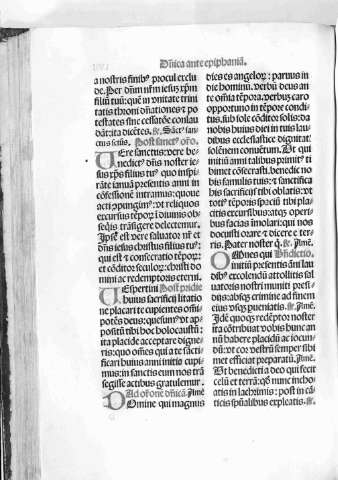 Dñica ante epiphaniã.
a nostris finibꝰ procul exclu
de. Per dñm nr̃m iesuʒ xp̃m
filiũ tuũ: quẽ in vnitate trini
tatis throni dñationes ⁊ po
testates sine cessatõe conlau
dãt ita dicẽtes. ⁊c. Sãct9 san
ctus sãtus. Post sanct9 or̃o.
VEre sanctus: vere be
nedict9 dñs noster ie
sus xp̃s filius tuꝰ quo inspi
rãte ianuã presentis anni in
cõfessionẽ intramus: quoue
excursus tẽpoꝝ
obseq̃is trãsigere delectemur.
Ipse est vere saluator nr̃ et
dñs iesus christus filius tuꝰ:
qui est ⁊ consecratio tẽpoꝝ:
et cõditor seculoꝝ: christi do
mini ac redemptoris eterni.
VEspertini Post pridie
huius sacrificij litatio
ne placari te cupientes omni
potẽs deus: quesumꝰ vt ap
positũ tibi hoc holocaustũ:
ita placide acceptare digne
ris: quo oẽs qui arte sacri
ficari huius anni initia cupi
mus: in sanctis eum nos trã
segisse actibus gratulemur.
Ad or̃onẽ dñicã. Amẽ
DOmine qui magnus
dies es angeloꝝ: paruus in
die hominũ. verbũ deus an
te om̃ia tẽpora. verbuʒ caro
opportuno in tẽpore condi
tus. sub sole cõditor solis: da
nobis huius diei in tuis lau
dibus ecclesiastice dignitat
solẽnem conuẽtum. Ut qui
initiũ anni talibus primit9 ti
bimet cõsecrasti. benedic no
bis famulis tuis: ⁊ sanctifica
bis sacrificijs tibi oblatis: vt
totꝰ tẽporis spaciũ tibi pla
citis excursibus: atqʒ operi
bus facias imolari: qui nos
docuisti orare ⁊ dicere e ter
ris. Pater noster q̃. ⁊c. Amẽ.
OMnes qui Bñdictio.
initiũ presentis ãni lau
dibꝰ excolendũ attollitis sal
uatoris nostri muniti presi
dijs: absqʒ crimine ad finem
eius vsqʒ pueniatis. ⁊c. Amẽ.
Idẽ quoqʒ redẽptor noster
ita cõtribuat vobis hunc an
nũ habere placidũ ac iocun
dũ: vt cor vestrũ semper sibi
met efficiat preparatũ. Amẽ.
Ut benedicti a deo qui fecit
celũ et terrã: q̃s nunc incho
atis in lachrimis: post in cã
ticis sp̃ualibus expleatis. ⁊c.